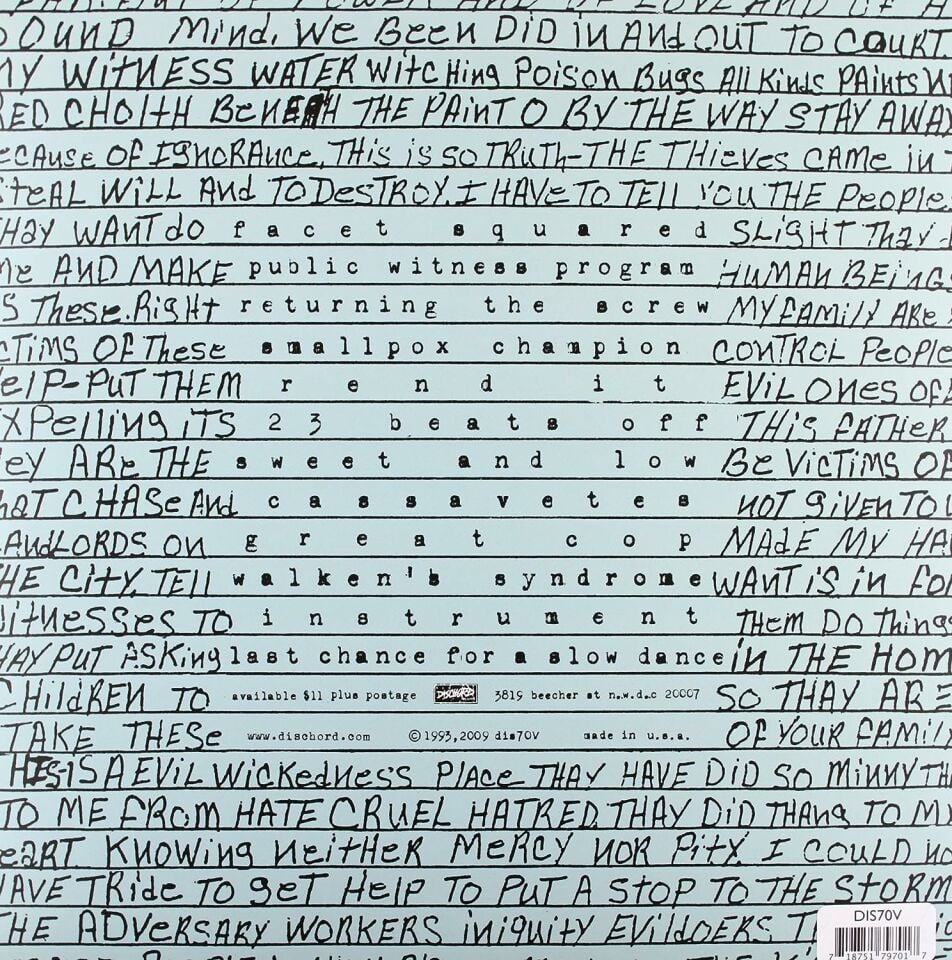 OF POWER AND OF LOVE AND OF A
OUND MIND, WE BEEN DID IN AND OUT TO COURT
MY WITNESS WATER WITCHING POISON BUGS All KINDS PAINTS
RED CHOITH BENEATH THE PAINT O BY THE WAY STAY AWAY
ECAUSE OF IGNORANCE, THIS IS SO TRUTH-THE THIEVES CAME IN
STEAL WILL AND TO DESTROY. I HAVE TO TELL YOU THE PEOPLE
THAY WANT do facet squared SLIGHT THAY
ME AND MAKE public witness program HUMAN BEINGS
S THESE. RIGHT returning the screw MY FAMILY ARE
CTIMS OF These smallpox champion CONTROL PEOPLE
ELP-PUT THEM rend it EVIL ONES OF
XPELLING ITS 23 beats off THIS FATHER
EY ARE THE sweet and low BE VICTIMS OF
HAT CHASE AND cassavetes NOT GIVEN TO
LANDLORDS ON great cop MADE MY HA
HE CITY, TELL walken's syndrome WANT IS IN FO
WITNESSES TO instrument THEM DO THINGS
HAY PUT ASKING last chance for a slow dance IN THE HOM
CHILDREN TO available $11 plus postage DISCHORD 3819 beecher st n.w.d.c 20007 SO THAY ARE
TAKE THESE www.dischord.com ©1993,2009 dis70V made in u.s.a. OF YOUR FAMILY
THIS-IS A EVIL WICKEDNESS PLACE THAY HAVE DID SO MINNY TH
TO ME FROM HATE CRUEL HATRED. THAY DID THANG TO M
EART KNOWING NEITHER MERCY NOR PITY I COULD NO
HAVE TRIDE TO GET HELP TO PUT A STOP TO THE STORM
THE ADVERSARY WORKERS INIQUITY EVILDOERS
DIS70V
7 18751 79701 7